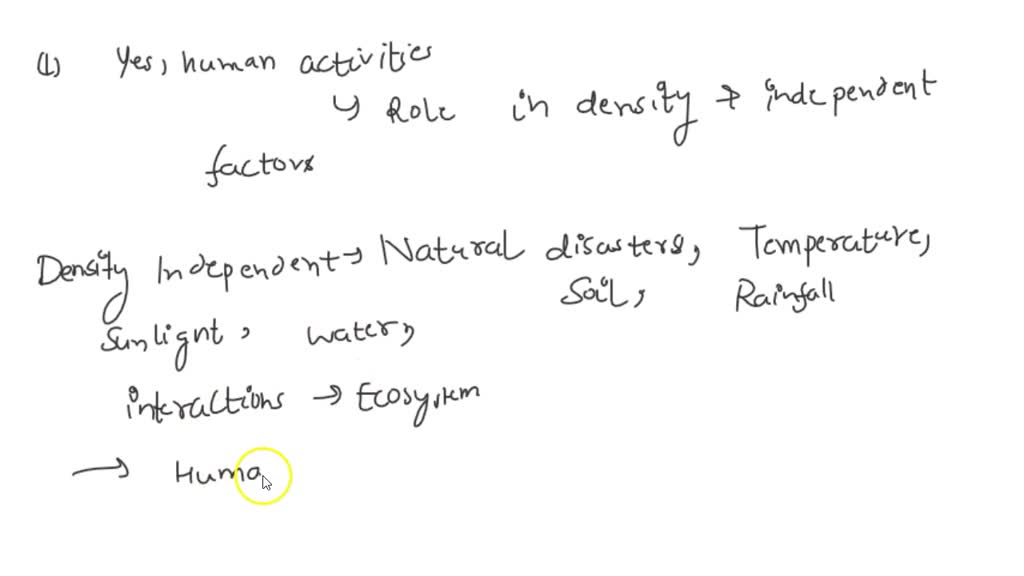 (1) Yes, human activities
↳ Role in density → independent
factors
Density Independent → Natural disasters, Temperature,
Soil, Rainfall
Sunlignt, water,
interactions → Ecosystem
→ Huma